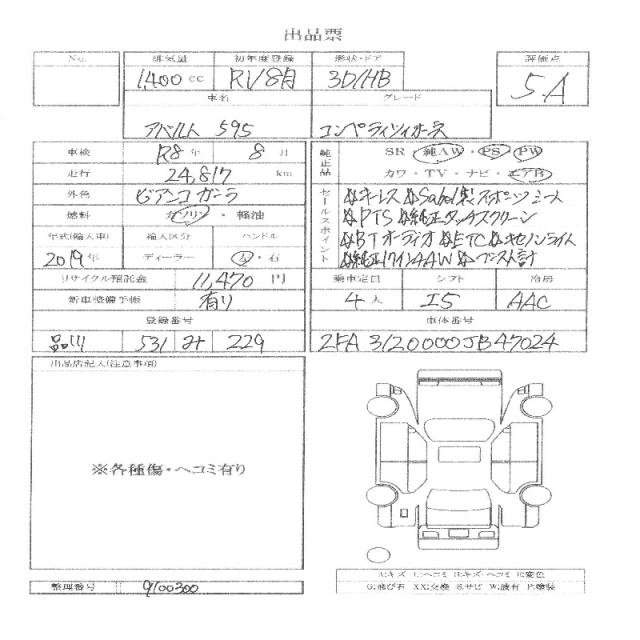 出品票
No. 排気量 初年度登録 形状・ドア 評価点
1,400 cc R1/8月 3D/HB 5.A
車名 グレード
アバルト 595 コンペティツィオーネ
車検 R8 年 8 月
純正品 SR・純AW・PS・PW
走行 24,817 km
カワ・TV・ナビ・エアB
外色 ビアンコ ガーラ
セールスポイント
☆キーレス ☆Sabelt製スポーツシート
燃料 ガソリン・軽油
☆PTS ☆純正タッチスクリーン
年式(輸入車) 輸入区分 ハンドル
☆BTオーディオ ☆ETC ☆キセノンライト
2019年 ディーラー 左・右
☆純正17インチAAW ☆ブースト計
リサイクル預託金 11,470 円
乗車定員 シフト 冷房
新車整備手帳 有り
4 人 I5 AAC
登録番号 車体番号
品川 531 み 229 ZFA3120000JB47024
出品店記入(注意事項)
※各種傷・ヘコミ有り
A:キズ U:ヘコミ B:キズ・ヘコミ C:変色
G:飛び石 XX:交換 S:サビ W:波有 P:塗装
整理番号 9100300